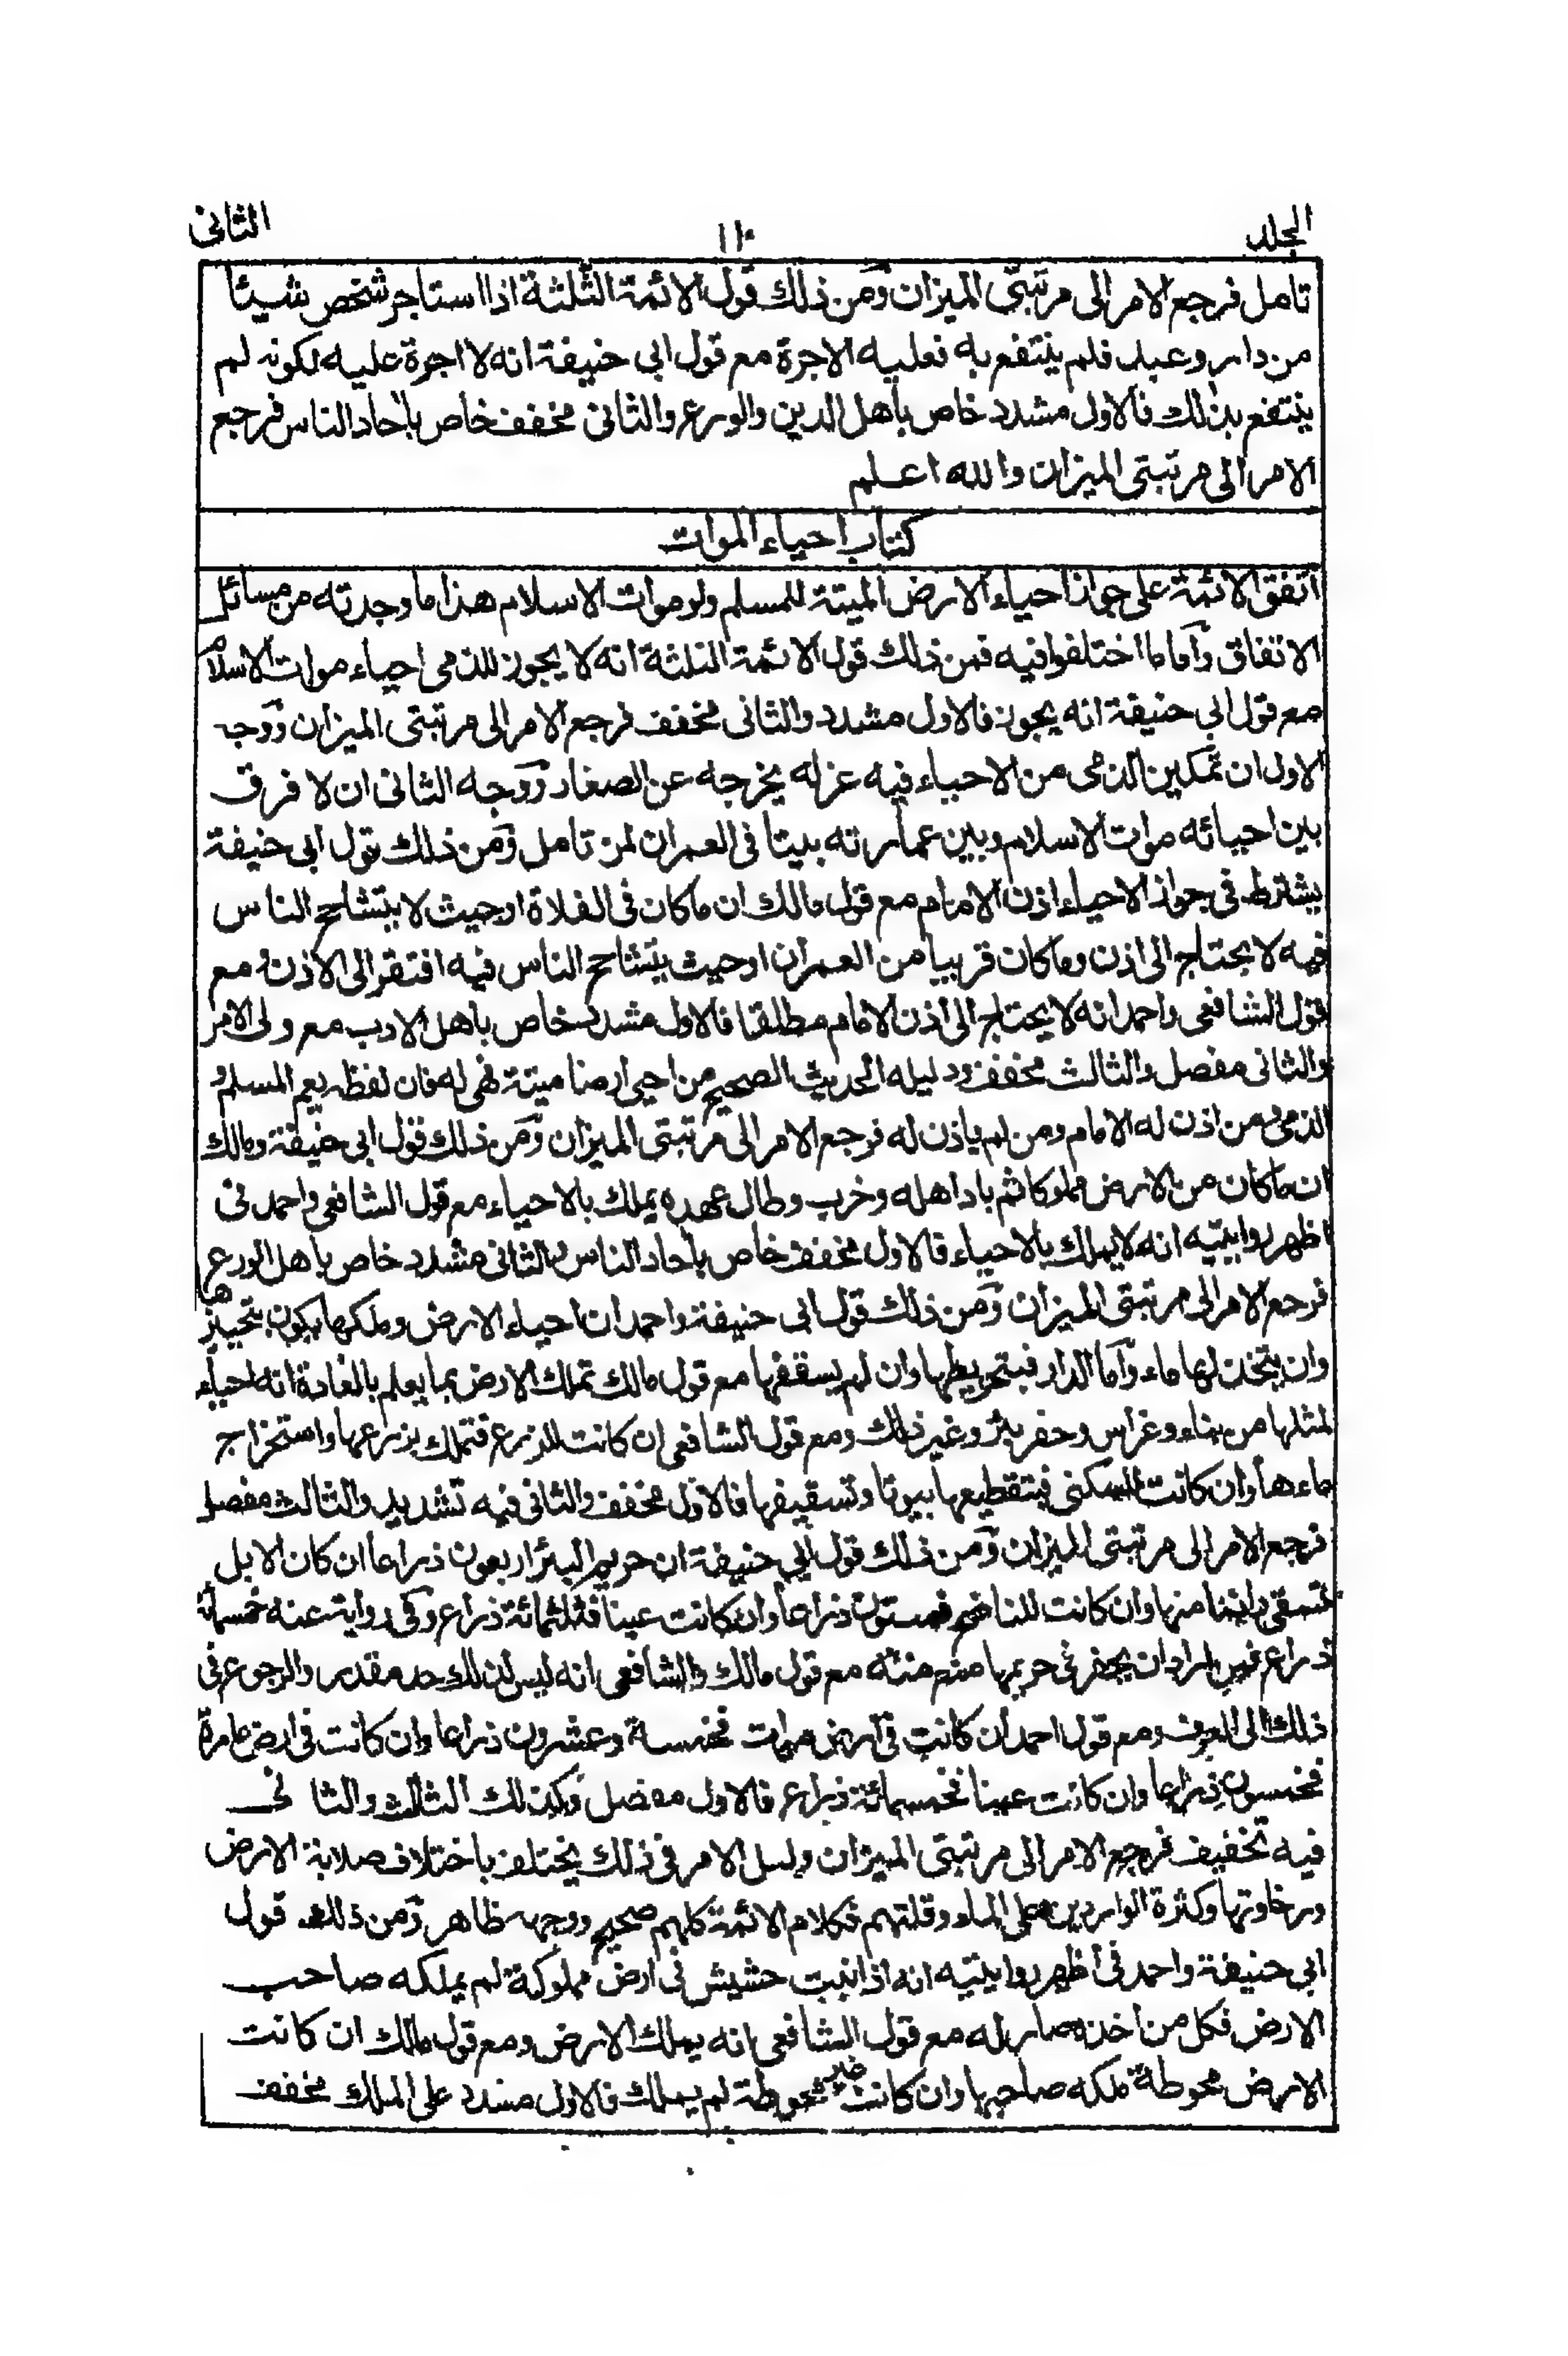 الجلد ١١٠ الثانى
تامل فرجع الامر الى مرتبتى الميزان ومن ذلك قول الائمة الثلثة اذا استاجر شخص شيئا
من دار وعبد فلم ينتفع به فعليه الاجرة مع قول ابى حنيفة انه لا اجرة عليه لكونه لم
ينتفع بذلك فالاول مشدد خاص باهل الدين والورع والثانى مخفف خاص باحاد الناس فرجع
الامر الى مرتبتى الميزان والله اعلم
كتاب احياء الموات
اتفق الائمة على جواز احياء الارض الميتة للمسلم ولو موات الاسلام هذا ما وجدته من مسائل
الاتفاق واما ما اختلفوا فيه فمن ذلك قول الائمة الثلثة انه لا يجوز للذمى احياء موات الاسلام
مع قول ابى حنيفة انه يجوز فالاول مشدد والثانى مخفف فرجع الامر الى مرتبتى الميزان ووجه
الاول ان تمكين الذمى من الاحياء فيه عزله يخرجه عن الصغار ووجه الثانى ان لا فرق
بين احيائه موات الاسلام وبين عمارته بيتا فى العمران لمن تامل ومن ذلك قول ابى حنيفة
يشترط فى جواز الاحياء اذن الامام مع قول مالك ان ما كان فى الفلاة او حيث لا يتشاحح الناس
فيه لا يحتاج الى اذن وما كان قريبا من العمران او حيث يتشاحح الناس فيه افتقر الى الاذن ومع
قول الشافعى واحمد انه لا يحتاج الى اذن الامام مطلقا فالاول مشدد خاص باهل الادب مع ولى الامر
والثانى مفصل والثالث مخفف ودليله الحديث الصحيح من احيى ارضا ميتة فهى له فان لفظه يعم المسلم و
الذمى من اذن له الامام ومن لم ياذن له فرجع الامر الى مرتبتى الميزان ومن ذلك قول ابى حنيفة ومالك
ان ما كان من الارض مملوكا ثم باد اهله وخرب وطال عهده يملك بالاحياء مع قول الشافعى واحمد فى
اظهر روايتيه انه لا يملك بالاحياء فالاول مخفف خاص باحاد الناس والثانى مشدد خاص باهل الورع
فرجع الامر الى مرتبتى الميزان ومن ذلك قول ابى حنيفة واحمد ان احياء الارض وملكها يكون بتحيزها
وان يتخذ لها ماء واما الدار فبتحويطها وان لم يسقفها مع قول مالك تملك الارض بما يعلم بالعادة انه احياء
لمثلها من بناء وغراس وحفر بئر وغير ذلك ومع قول الشافعى ان كانت للزرع فتملك بزرعها واستخراج
ماءها وان كانت للسكنى فبتقطيعها بيوتا وتسقيفها فالاول مخفف والثانى فيه تشديد والثالث مفصل
فرجع الامر الى مرتبتى الميزان ومن ذلك قول ابى حنيفة ان حريم البئر اربعون ذراعا ان كان الابل
تسقى منها وان كانت للناضح فستون ذراعا وان كانت عينا فثلثمائة ذراع وفى رواية عنه خمسمائة
ذراع فمن اراد ان يحفر فى حريمها منع منه مع قول مالك والشافعى انه ليس لذلك حد مقدر والرجوع فى
ذلك الى العرف ومع قول احمد ان كانت فى ارض موات فخمسة وعشرون ذراعا وان كانت فى ارض عامرة
فخمسون ذراعا وان كانت عينا فخمسمائة ذراع فالاول مفصل وكذلك الثالث والثانى
فيه تخفيف فرجع الامر الى مرتبتى الميزان ولعل الامر فى ذلك يختلف باختلاف صلابة الارض
ورخاوتها وكثرة الواردين على الماء وقلتهم فكلام الائمة كلهم صحيح ووجهه ظاهر ومن ذلك قول
ابى حنيفة واحمد فى اظهر روايتيه انه اذا نبت حشيش فى ارض مملوكة لم يملكه صاحب
الارض فكل من اخذه صار له مع قول الشافعى انه يملك الارض ومع قول مالك ان كانت
الارض محوطة ملكه صاحبها وان كانت غير محوطة لم يملك فالاول مشدد على الملك مخفف